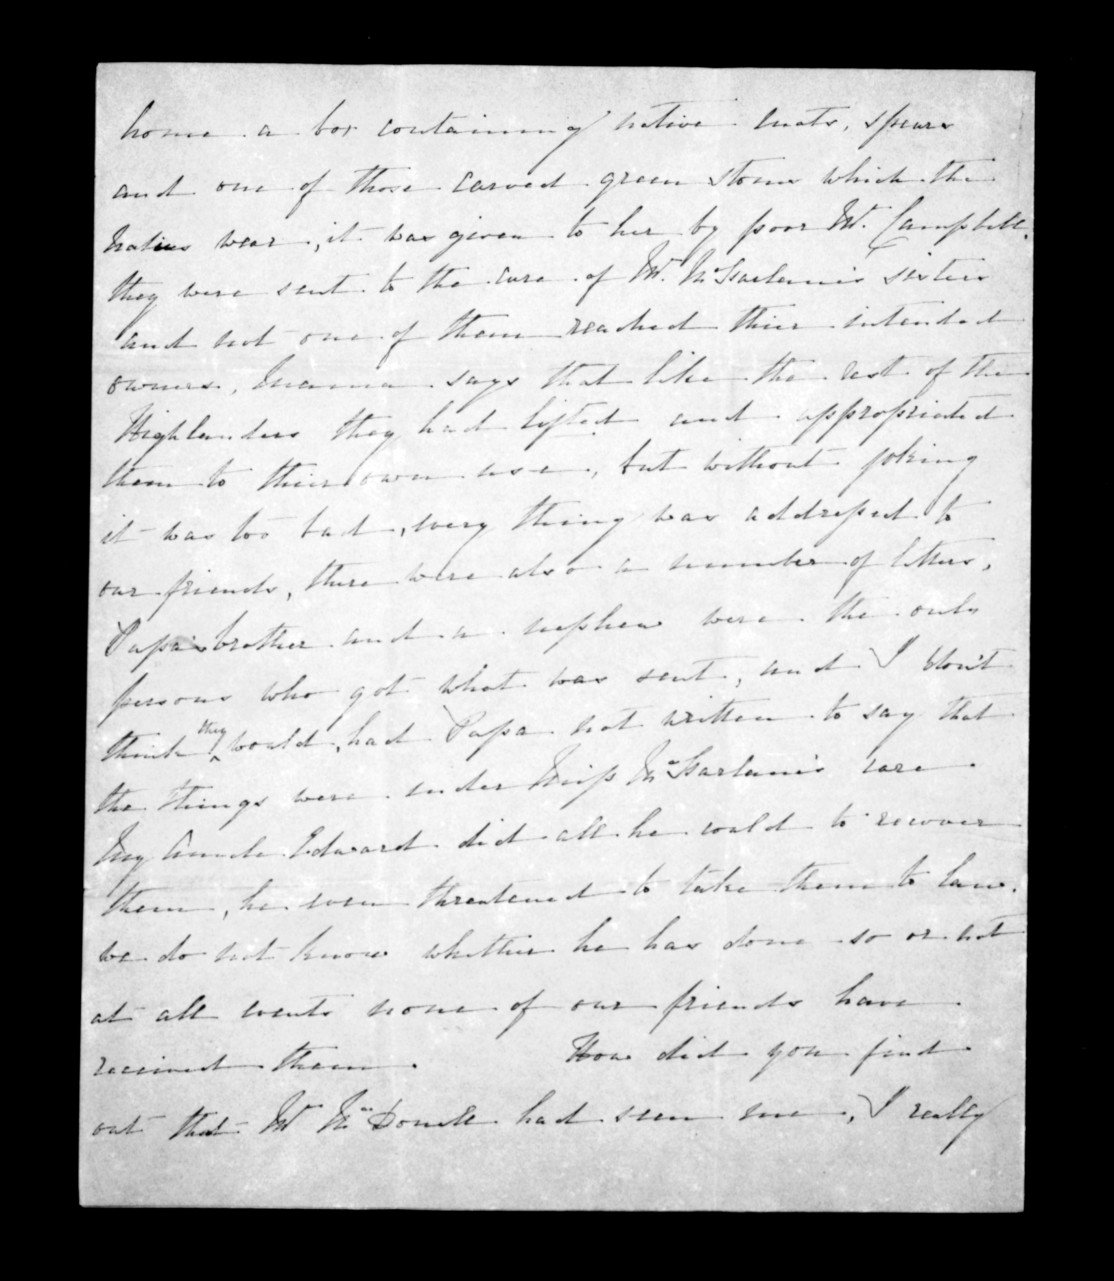 home a box containing native mats, spears
and one of those carved green stones which the
natives wear, it was given to her by poor Mr. Campbell,
they were sent to the care of Mr. McFarlane's sisters
and not one of them reached their intended
owners, Mamma says that like the rest of the
Highlanders they had lifted and appropriated
them to their own use, but without joking
it was too bad, every thing was addressed to
our friends, there were also a number of letters,
Papa's brother and a nephew were the only
persons who got what was sent, and I don't
think they would, had Papa not written to say that
the things were under Miss McFarlane's care
My Uncle Edward did all he could to recover
them, he even threatened to take them to law.
we do not know whether he has done so or not
at all events none of our friends have
received them. How did you find
out that Mr McDonell had seen me, I really